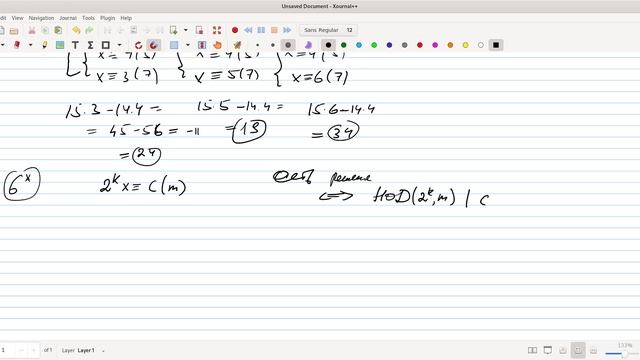 Unsaved Document - Xournal++
dit View Navigation Journal Tools Plugin Help
Sans Regular 12
x ≡ 3 (7) x ≡ 5(7) x=6(7)
15.3-14.4 = 15.5-14.4= 15.6-14.4
= 45-56 = -11 =13 =34
=24
6ˣ 2ᵏ x ≡ C (m) Есть решение
<=> НОД(2ᵏ, m) | C
1 of 1 Layer Layer 1 133%